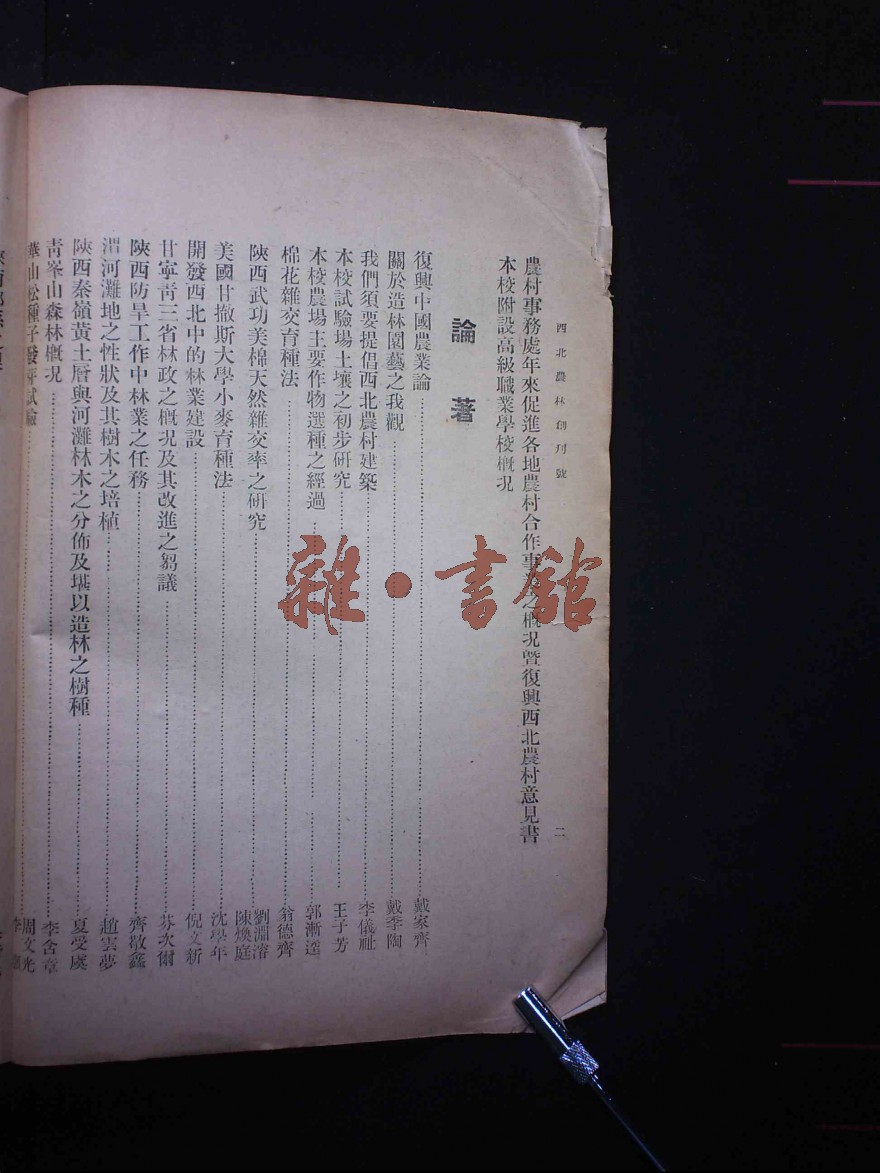 西北農林創刊號
二
農村事務處年來促進各地農村合作事之概況暨復興西北農村意見書
本校附設高級職業學校概況
論著
復興中國農業論 戴家齊
關於造林園藝之我觀 戴季陶
我們須要提倡西北農村建築 李儀祉
本校試驗場土壤之初步研究 王子芳
本校農場主要作物選種之經過 郭漸逵
棉花雜交育種法 翁德齊
陝西武功美棉天然雜交率之研究 劉淵濬 陳煥庭
美國甘撒斯大學小麥育種法 沈學年
開發西北中的林業建設 倪文新
甘寧青三省林政之概況及其改進之芻議 芬次爾
陝西防旱工作中林業之任務 齊敬鑫
渭河灘地之性狀及其樹木之培植 趙雲夢
陝西秦嶺黃土層與河灘林木之分佈及堪以造林之樹種 夏受虞
青峯山森林概況 李含章
華山松種子發芽試驗 周文光 李
雜·書館